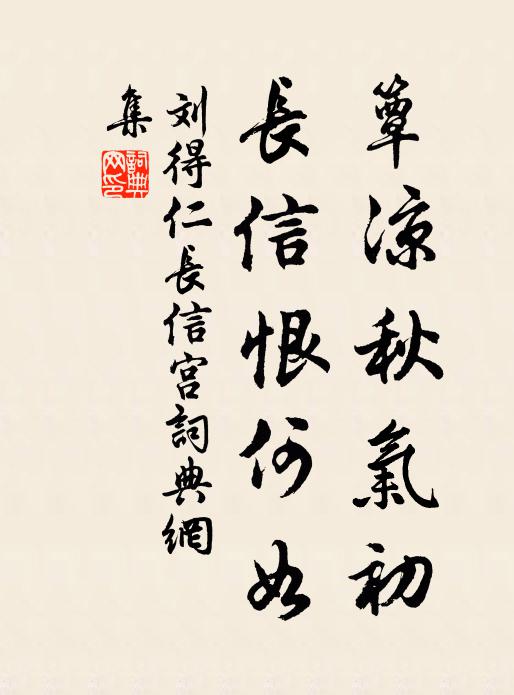 簟凉秋氣初
長信恨何如
刘得仁長信宫詞典網
集
詞典網印